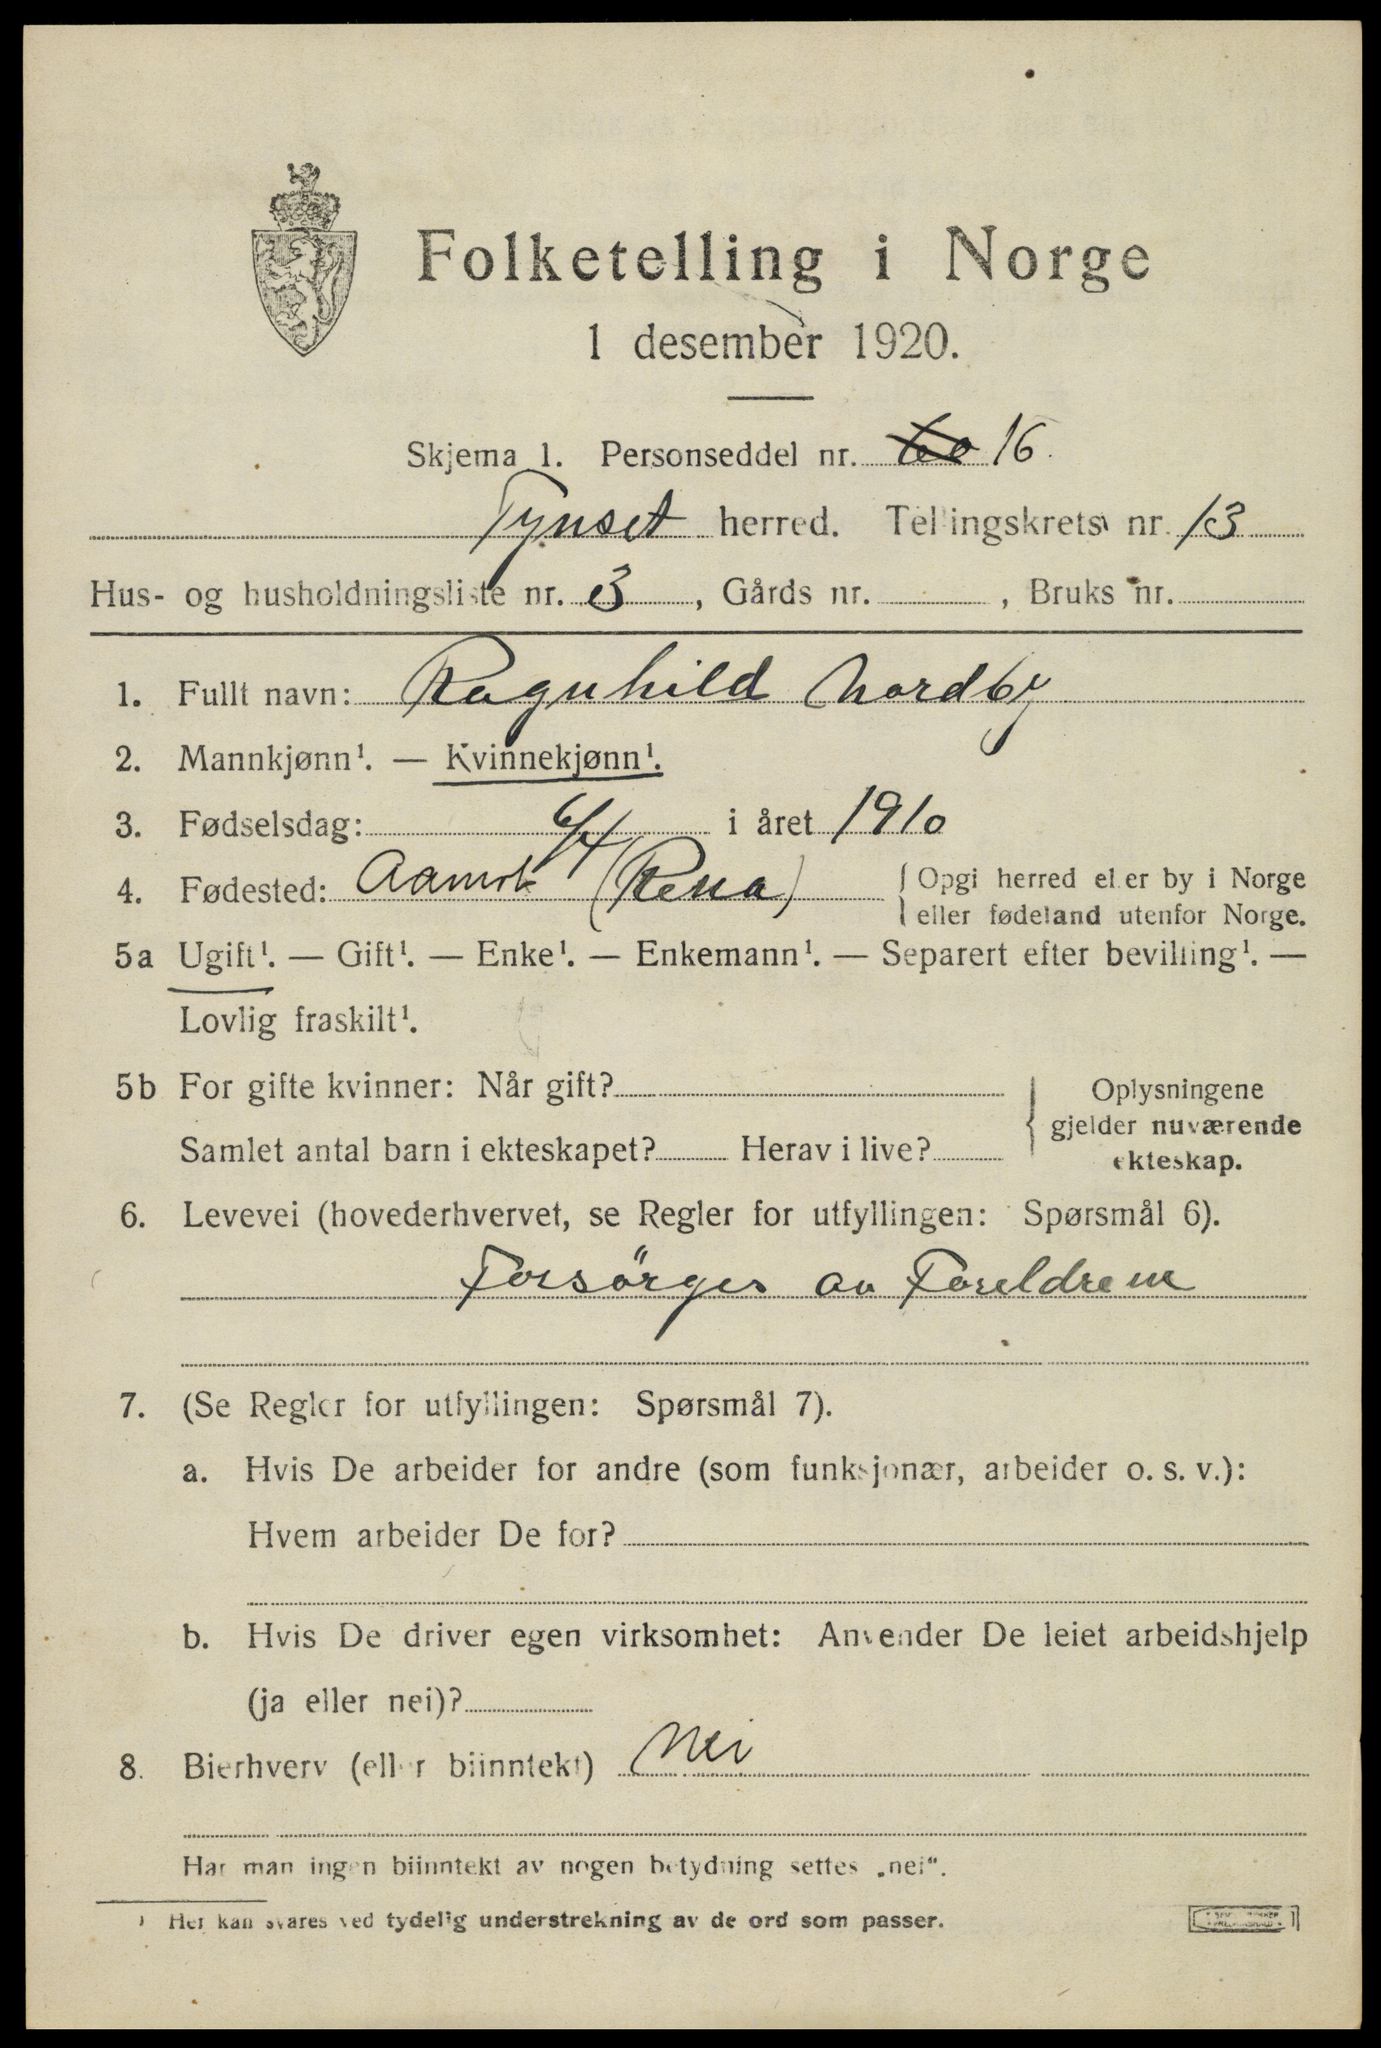 Folketelling i Norge
1 desember 1920.
Skjema 1. Personseddel nr. 60 16
Tynset herred. Tellingskrets nr. 13
Hus- og husholdningsliste nr. 3, Gårds nr. , Bruks nr.
1. Fullt navn: Ragnhild Nordby
2. Mannkjønn¹. — Kvinnekjønn¹.
3. Fødselsdag: 6/4 i året 1910
4. Fødested: Aamot (Rena) { Opgi herred eller by i Norge
eller fødeland utenfor Norge.
5a Ugift¹. — Gift¹. — Enke¹. — Enkemann¹. — Separert efter bevilling¹. —
Lovlig fraskilt¹.
5b For gifte kvinner: Når gift? { Oplysningene
gjelder nuværende
ekteskap.
Samlet antal barn i ekteskapet? Herav i live?
6. Levevei (hovederhvervet, se Regler for utfyllingen: Spørsmål 6).
Forsörges av Foreldrene
7. (Se Regler for utfyllingen: Spørsmål 7).
a. Hvis De arbeider for andre (som funksjonær, arbeider o. s. v.):
Hvem arbeider De for?
b. Hvis De driver egen virksomhet: Anvender De leiet arbeidshjelp
(ja eller nei)?
8. Bierhverv (eller biinntekt) Nei
Har man ingen biinntekt av nogen betydning settes „nei“.
¹ Her kan svares ved tydelig understrekning av de ord som passer.